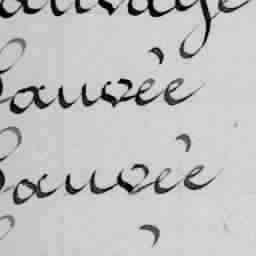 Sauvage
Sauvée
Sauvée